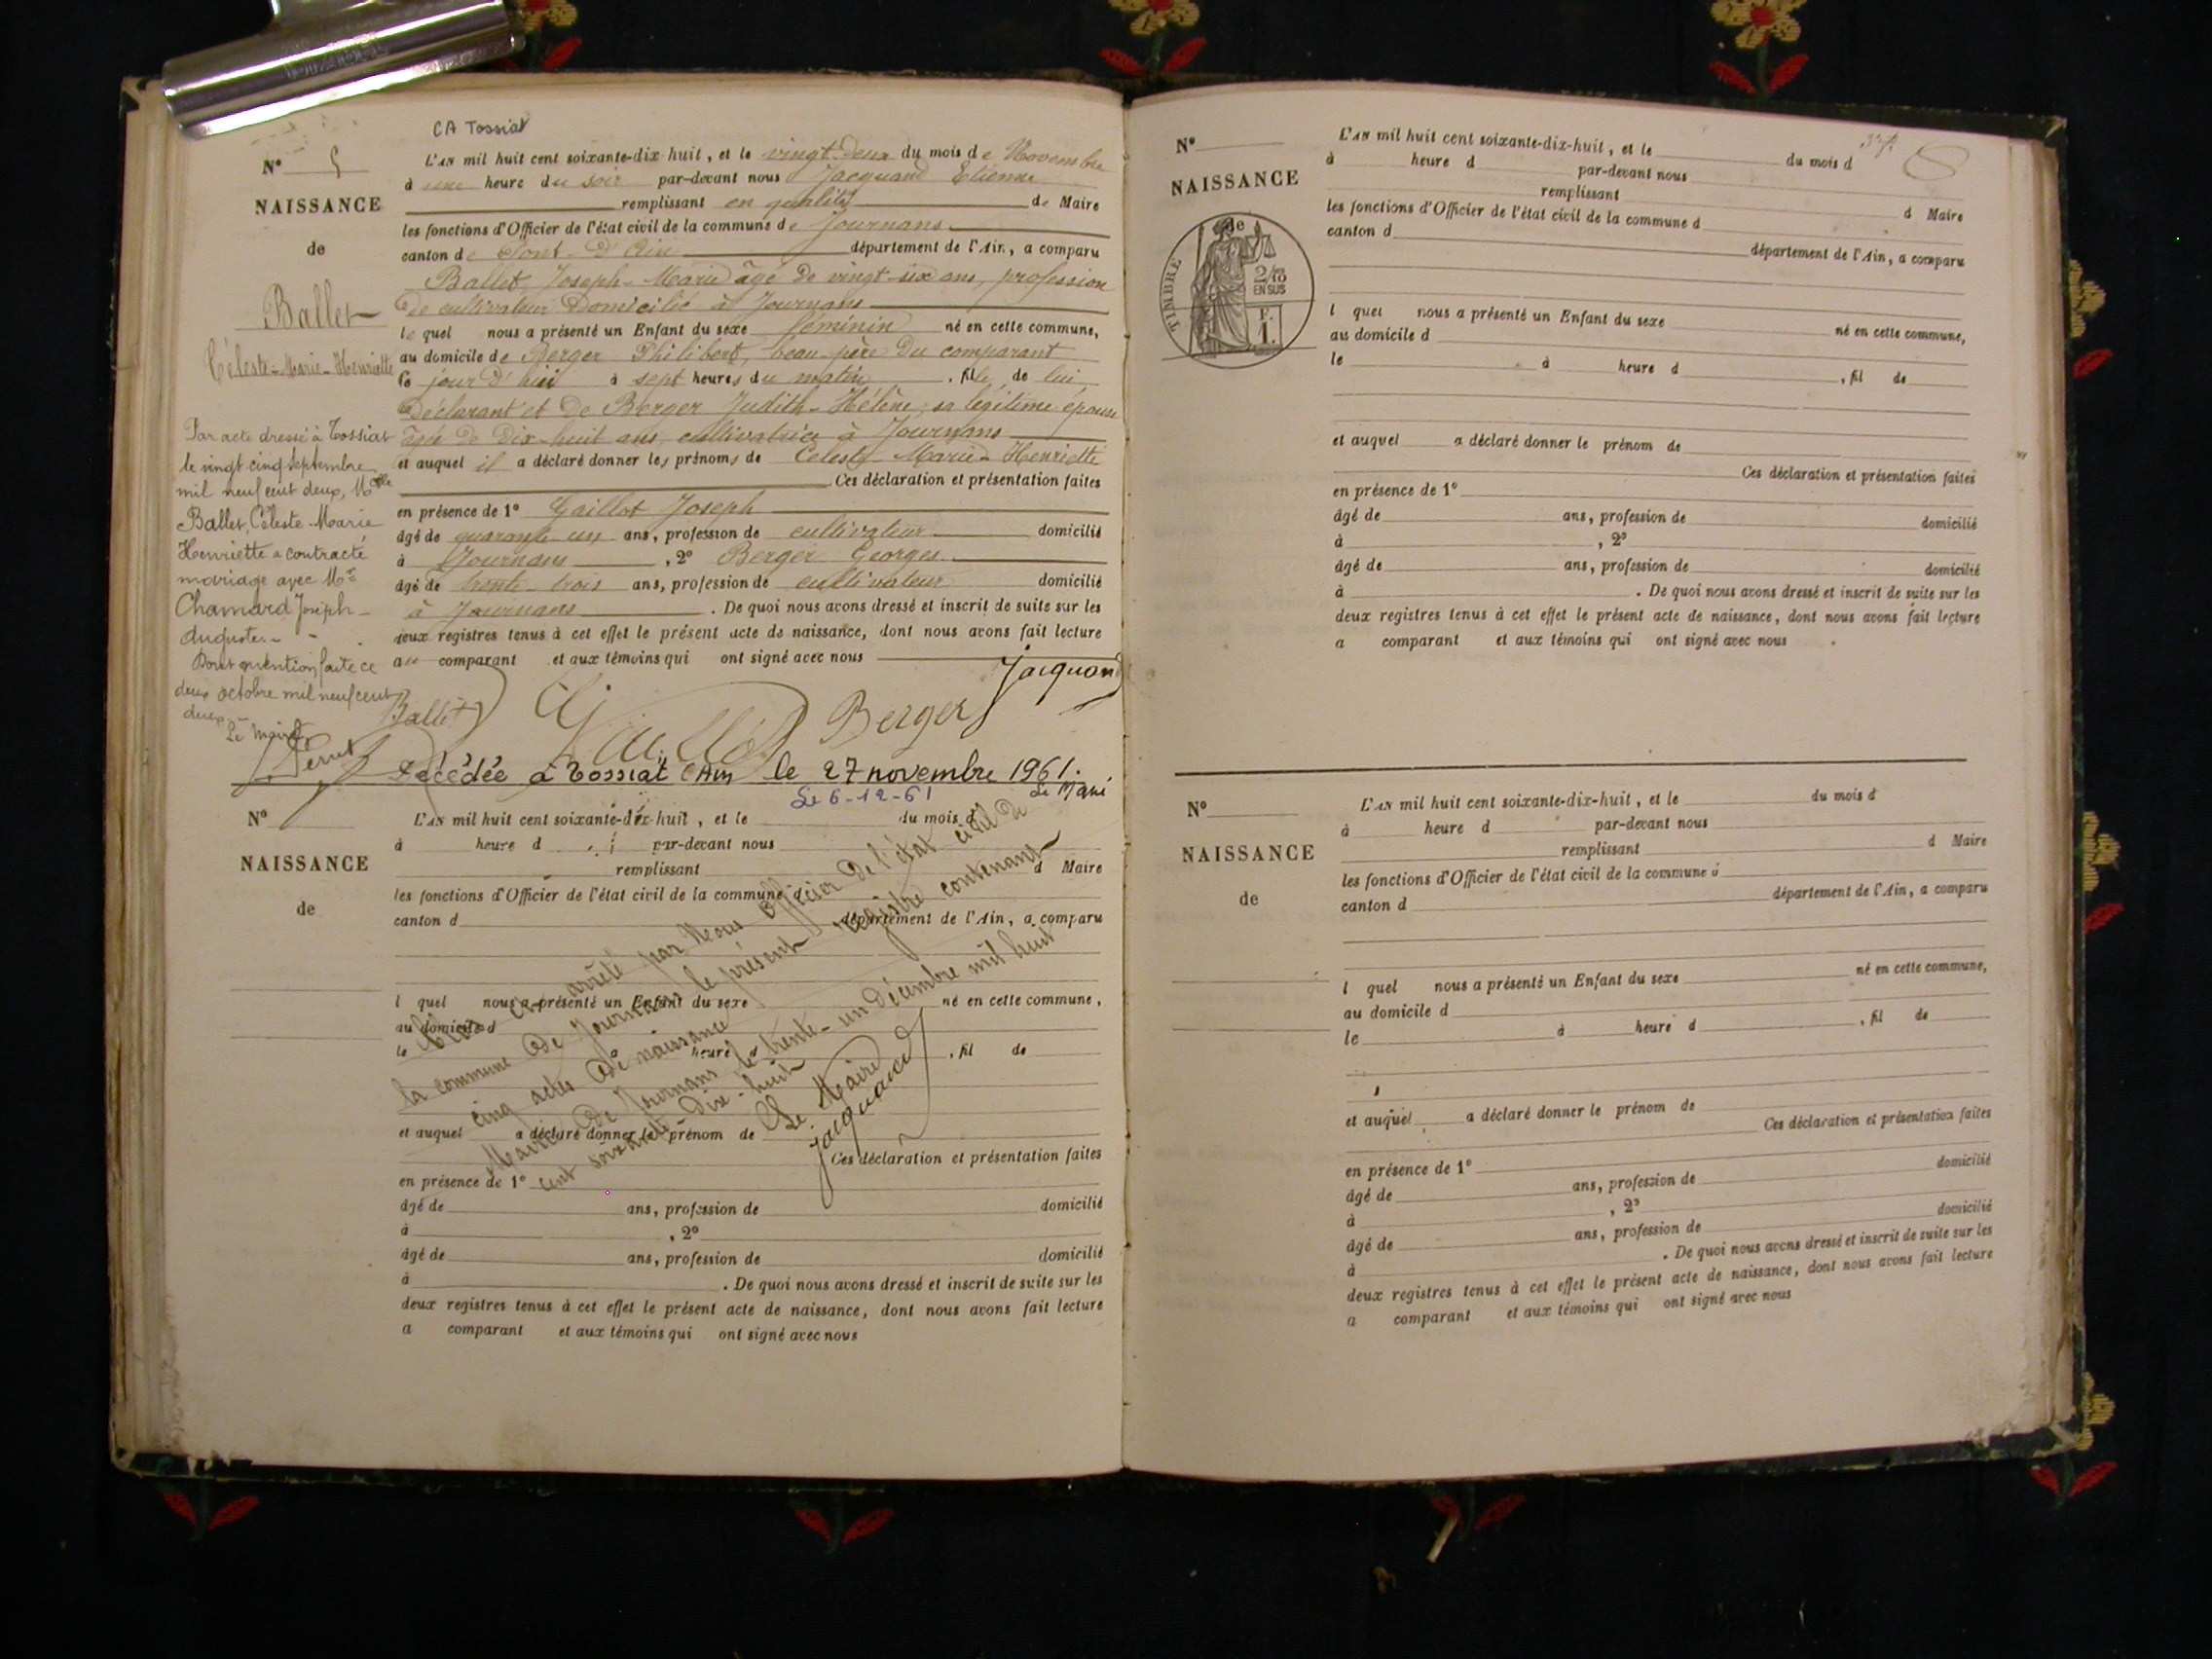 CA Tossiat
N° 5
NAISSANCE
de
Ballet
Céleste-Marie-Henriette
L'AN mil huit cent soixante-dix-huit, et le vingt-deux du mois de Novembre
à une heure du soir par-devant nous Jacquand Etienne
remplissant en qualité de Maire
les fonctions d'Officier de l'état civil de la commune de Journans
canton de Pont-d'Ain département de l'Ain, a comparu
Ballet, Joseph-Marie âgé de vingt-six ans, profession
de cultivateur Domicilié à Journans
le quel nous a présenté un Enfant du sexe féminin né en cette commune,
au domicile de Berger Philibert, beau-père du comparant
le jour d'hui à sept heures du matin, fille de lui
déclarant et de Berger Judith-Hélène, sa légitime épouse
âgée de dix-huit ans, cultivatrice à Journans
et auquel il a déclaré donner les prénoms de Céleste-Marie-Henriette
Ces déclaration et présentation faites
en présence de 1° Gaillot Joseph
âgé de quarante un ans, profession de cultivateur domicilié
à Journans, 2° Berger Georges
âgé de trente-trois ans, profession de cultivateur domicilié
à Journans. De quoi nous avons dressé et inscrit de suite sur les
deux registres tenus à cet effet le présent acte de naissance, dont nous avons fait lecture
au comparant et aux témoins qui ont signé avec nous
Jacquand
Ballet Berger
Par acte dressé à Tossiat
le vingt cinq septembre
mil neuf cent deux, Melle
Ballet, Céleste-Marie
Henriette a contracté
mariage avec Mr
Chamard Joseph-
Auguste.
Dont mention faite ce
deux octobre mil neuf cent
deux
Le Maire
Décédée à Tossiat (Ain) le 27 novembre 1961.
Le 6-12-61 Le Maire
N°
NAISSANCE
de
L'AN mil huit cent soixante-dix-huit, et le du mois d
à heure d par-devant nous
remplissant d Maire
les fonctions d'Officier de l'état civil de la commune d
canton d département de l'Ain, a comparu
l quel nous a présenté un Enfant du sexe né en cette commune,
au domicile d
le à heure d, fil de
et auquel a déclaré donner le prénom de
Ces déclaration et présentation faites
en présence de 1°
âgé de ans, profession de domicilié
à , 2°
âgé de ans, profession de domicilié
à . De quoi nous avons dressé et inscrit de suite sur les
deux registres tenus à cet effet le présent acte de naissance, dont nous avons fait lecture
a comparant et aux témoins qui ont signé avec nous
Clos et arrêté par Nous Officier de l'état civil de
la commune de Journans le présent registre contenant
cinq actes de naissance
Mairie de Journans le trente-un décembre mil huit
cent soixante-dix-huit
Le Maire
Jacquand
N°
NAISSANCE
de
TIMBRE
2/10
EN SUS
F.
1.
L'AN mil huit cent soixante-dix-huit, et le du mois d
à heure d par-devant nous
remplissant d Maire
les fonctions d'Officier de l'état civil de la commune d
canton d département de l'Ain, a comparu
l quel nous a présenté un Enfant du sexe né en cette commune,
au domicile d
le à heure d, fil de
et auquel a déclaré donner le prénom de
Ces déclaration et présentation faites
en présence de 1°
âgé de ans, profession de domicilié
à , 2°
âgé de ans, profession de domicilié
à . De quoi nous avons dressé et inscrit de suite sur les
deux registres tenus à cet effet le présent acte de naissance, dont nous avons fait lecture
a comparant et aux témoins qui ont signé avec nous
N°
NAISSANCE
de
L'AN mil huit cent soixante-dix-huit, et le du mois d
à heure d par-devant nous
remplissant d Maire
les fonctions d'Officier de l'état civil de la commune d
canton d département de l'Ain, a comparu
l quel nous a présenté un Enfant du sexe né en cette commune,
au domicile d
le à heure d, fil de
et auquel a déclaré donner le prénom de
Ces déclaration et présentation faites
en présence de 1°
âgé de ans, profession de domicilié
à , 2°
âgé de ans, profession de domicilié
à . De quoi nous avons dressé et inscrit de suite sur les
deux registres tenus à cet effet le présent acte de naissance, dont nous avons fait lecture
a comparant et aux témoins qui ont signé avec nous